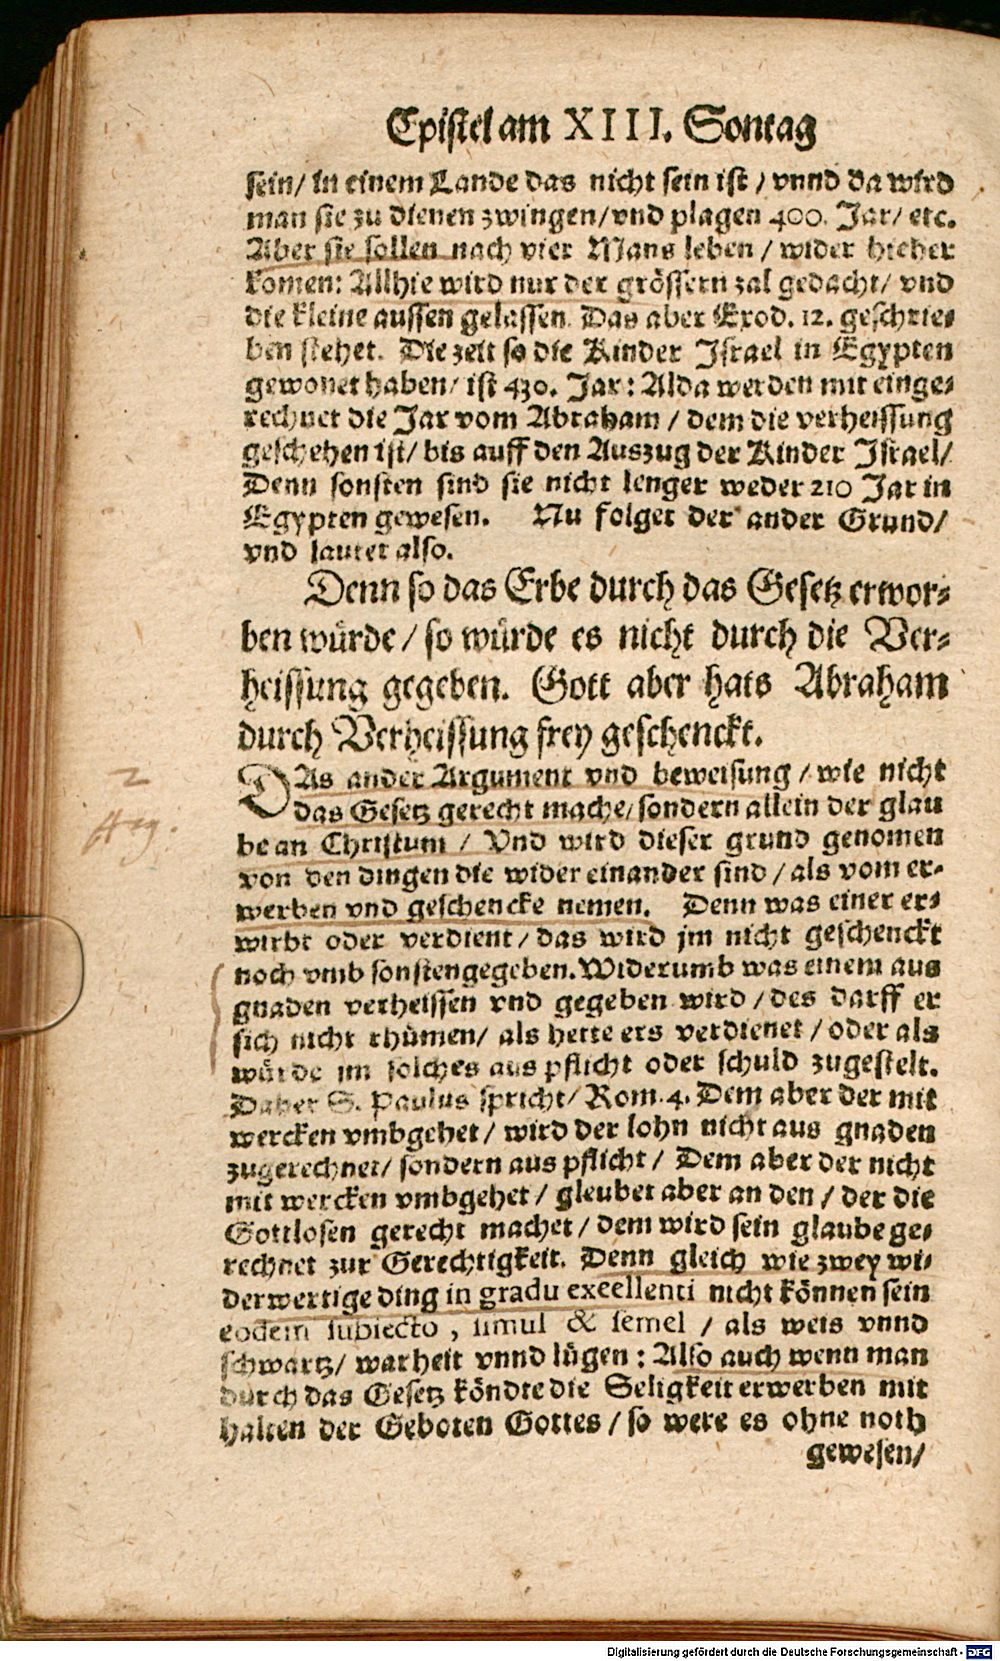 Epistel am XIII. Sontag
sein/ in einem Lande das nicht sein ist / vnnd da wird
man sie zu dienen zwingen/vnd plagen 400. Jar/ etc.
Aber sie sollen nach vier Mans leben / wider hieher
komen: Allhie wird nur der grössern zal gedacht/ vnd
die kleine aussen gelassen. Das aber Exod. 12. geschrie-
ben stehet. Die zeit so die Kinder Israel in Egypten
gewonet haben/ ist 430. Jar: Alda werden mit einge-
rechnet die Jar vom Abraham / dem die verheissung
geschehen ist/ bis auff den Auszug der Kinder Israel/
Denn sonsten sind sie nicht lenger weder 210 Jar in
Egypten gewesen. Nu folget der ander Grund/
vnd lautet also.
Denn so das Erbe durch das Gesetz erwor-
ben würde / so würde es nicht durch die Ver-
heissung gegeben. Gott aber hats Abraham
durch Verheissung frey geschenckt.
DAs ander Argument vnd beweisung / wie nicht
das Gesetz gerecht mache/ sondern allein der glau
be an Christum / Vnd wird dieser grund genomen
von den dingen die wider einander sind / als vom er-
werben vnd geschencke nemen. Denn was einer er-
wirbt oder verdient / das wird jm nicht geschenckt
noch vmb sonsten gegeben. Widerumb was einem aus
gnaden verheissen vnd gegeben wird / des darff er
sich nicht rhümen/ als hette ers verdienet / oder als
würde jm solches aus pflicht oder schuld zugestelt.
Daher S. Paulus spricht/ Rom. 4. Dem aber der mit
wercken vmbgehet / wird der lohn nicht aus gnaden
zugerechnet/ sondern aus pflicht / Dem aber der nicht
mit wercken vmbgehet / gleubet aber an den / der die
Gottlosen gerecht machet / dem wird sein glaube ge-
rechnet zur Gerechtigkeit. Denn gleich wie zwey wi-
derwertige ding in gradu excellenti nicht können sein
eodem subiecto, simul & semel / als weis vnnd
schwartz/ warheit vnnd lügen : Also auch wenn man
durch das Gesetz köndte die Seligkeit erwerben mit
halten der Geboten Gottes / so were es ohne noth
gewesen/
2
Arg.
Digitalisierung gefördert durch die Deutsche Forschungsgemeinschaft - DFG